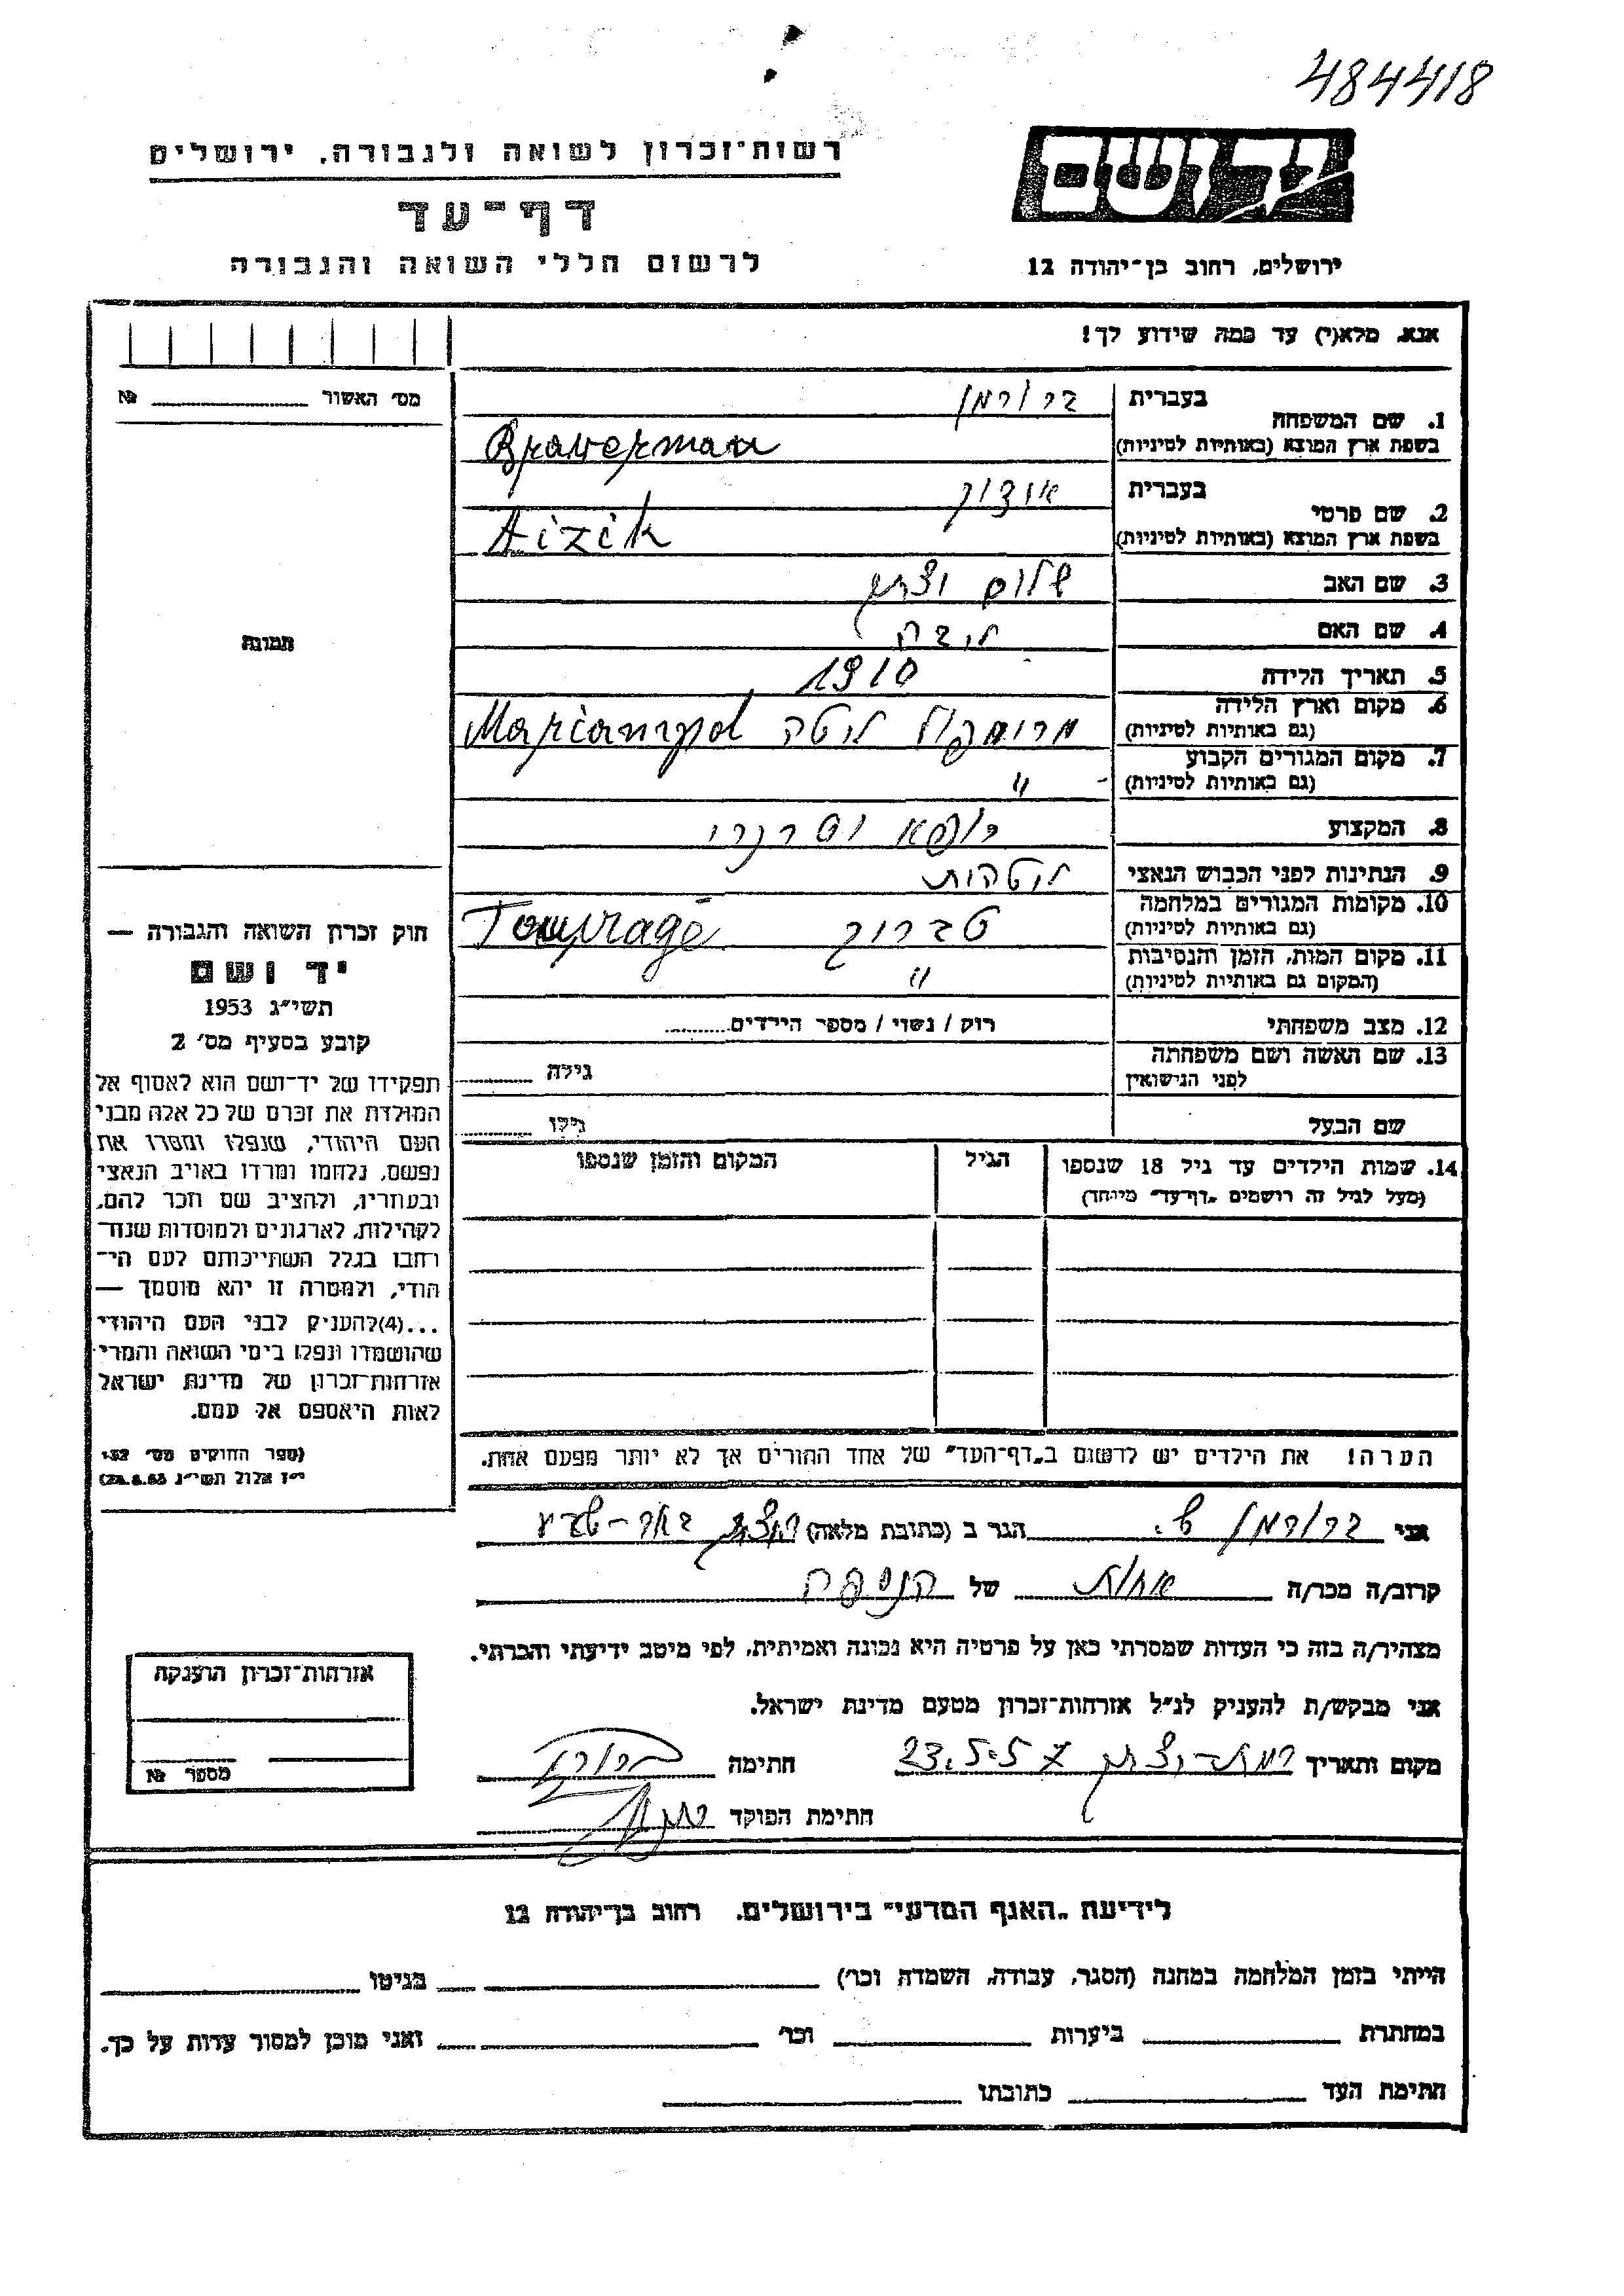 484418
יד ושם
רשות־זכרון לשואה ולגבורה, ירושלים
דף־עד
לרשום חללי השואה והגבורה
ירושלים, רחוב בן־יהודה 12
אנא, מלא(י) עד כמה שידוע לך!
מס׳ האשור № ............
תמונה
בעברית ברורמן
1. שם המשפחה
בשפת ארץ המוצא (באותיות לטיניות) Braverman
בעברית איציק
2. שם פרטי
בשפת ארץ המוצא (באותיות לטיניות) Aizik
3. שם האב שלום יצחק
4. שם האם
5. תאריך הלידה 1910
6. מקום וארץ הלידה
(גם באותיות לטיניות) מרימפול ליטה Mariampol
7. מקום המגורים הקבוע
(גם באותיות לטיניות) "
8. המקצוע רופא וטרנרי
9. הנתינות לפני הכבוש הנאצי ליטאית
10. מקומות המגורים במלחמה
(גם באותיות לטיניות) טברוג Tourage
11. מקום המות, הזמן והנסיבות
(המקום גם באותיות לטיניות) "
12. מצב משפחתי רוק / נשוי / מספר הילדים..........
13. שם האשה ושם משפחתה
לפני הנישואין גילה ............
שם הבעל גילו ............
14. שמות הילדים עד גיל 18 שנספו הגיל המקום והזמן שנספו
(מעל לגיל זה רושמים „דף־עד״ מיוחד)
הערה! את הילדים יש לרשום ב„דף־העד״ של אחד ההורים אך לא יותר מפעם אחת.
חוק זכרון השואה והגבורה —
יד ושם
תשי״ג 1953
קובע בסעיף מס׳ 2
תפקידו של יד־ושם הוא לאסוף אל
המולדת את זכרם של כל אלה מבני
העם היהודי, שנפלו ומסרו את
נפשם, נלחמו ומרדו באויב הנאצי
ובעוזריו, ולהציב שם וזכר להם,
לקהילות, לארגונים ולמוסדות שנח־
רבו בגלל השתייכותם לעם הי־
הודי, ולמטרה זו יהא מוסמך —
...(4)להעניק לבני העם היהודי
שהושמדו ונפלו בימי השואה והמרי
אזרחות־זכרון של מדינת ישראל
לאות היאספם אל עמם.
(ספר החוקים מס׳ 132
י״ז אלול תשי״ג 28.8.53)
אני ברורמן ש. הגר ב (כתובת מלאה) באר-שבע
קרוב/ה מכר/ה אחות של הנספה
מצהיר/ה בזה כי העדות שמסרתי כאן על פרטיה היא נכונה ואמיתית, לפי מיטב ידיעתי והכרתי.
אני מבקש/ת להעניק לנ״ל אזרחות־זכרון מטעם מדינת ישראל.
מקום ותאריך רמת-יצחק 23.5.57 חתימה
חתימת הפוקד
אזרחות־זכרון הוענקה
מספר №
לידיעת „האגף המדעי״ בירושלים, רחוב בן־יהודה 12
הייתי בזמן המלחמה במחנה (הסגר, עבודה, השמדה וכו׳) בגיטו
במחתרת ביערות וכו׳ ואני מוכן למסור עדות על כך.
חתימת העד כתובתו